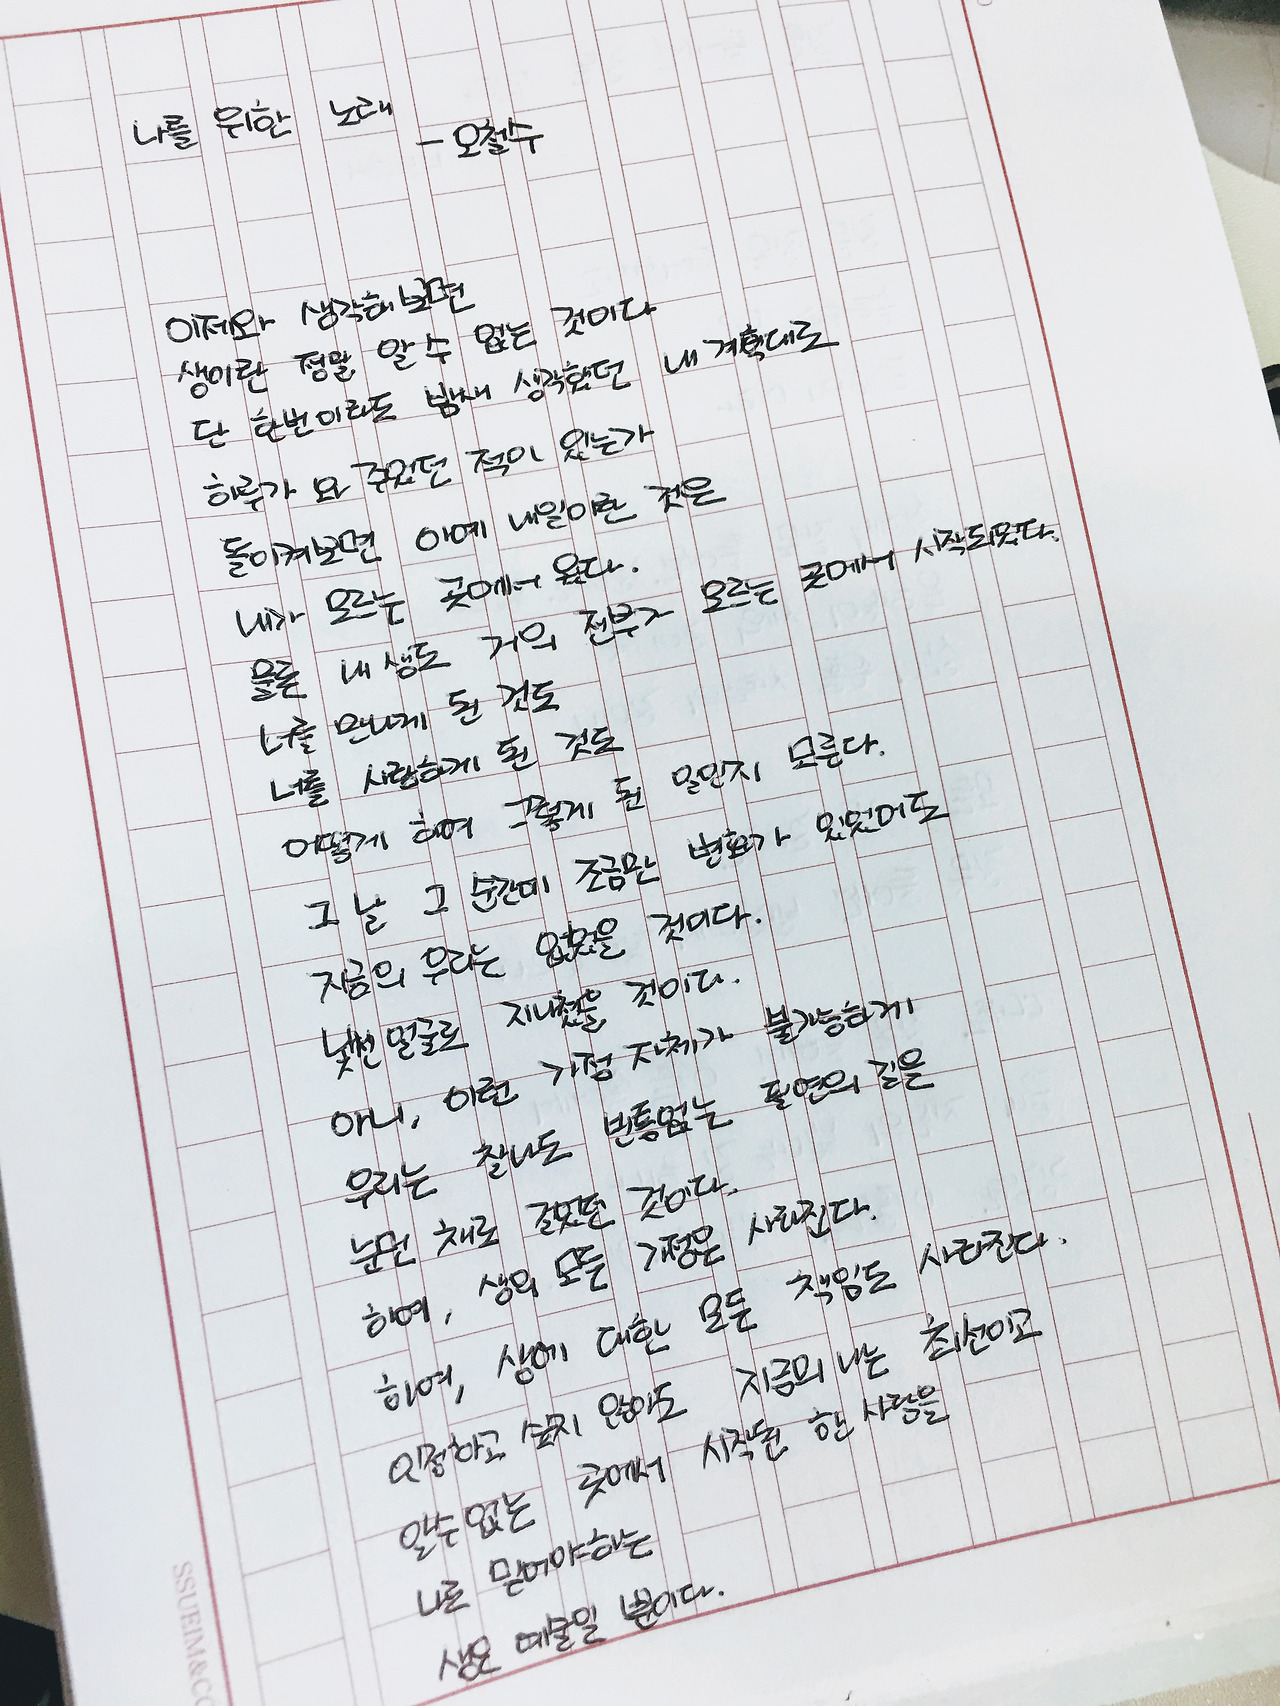 나를 위한 노래
- 오철수
이제와 생각해보면
생이란 정말 알 수 없는 것이다
단 한번이라도 밤새 생각했던 내 계획대로
하루가 와 주었던 적이 있는가
돌이켜보면 아예 내일이란 것은
내가 모르는 곳에서 왔다.
물론 내 생도 거의 전부가 모르는 곳에서 시작되었다.
너를 만나게 된 것도
너를 사랑하게 된 것도
어떻게 하여 그렇게 된 일인지 모른다.
그 날 그 순간에 조금만 변화가 있었어도
지금의 우리는 없었을 것이다.
낯선 얼굴로 지나쳤을 것이다.
아니, 이런 가정 자체가 불가능하게
우리는 찰나도 빈틈없는 필연의 길을
눈먼 채로 걸었던 것이다.
하여, 생의 모든 가정은 사라진다.
하여, 생에 대한 모든 책임도 사라진다.
인정하고 싶지 않아도 지금의 나는 최선이고
알수 없는 곳에서 시작된 한 사람을
나로 믿어야하는
생은 예술일 뿐이다.
SSUEIM&CO